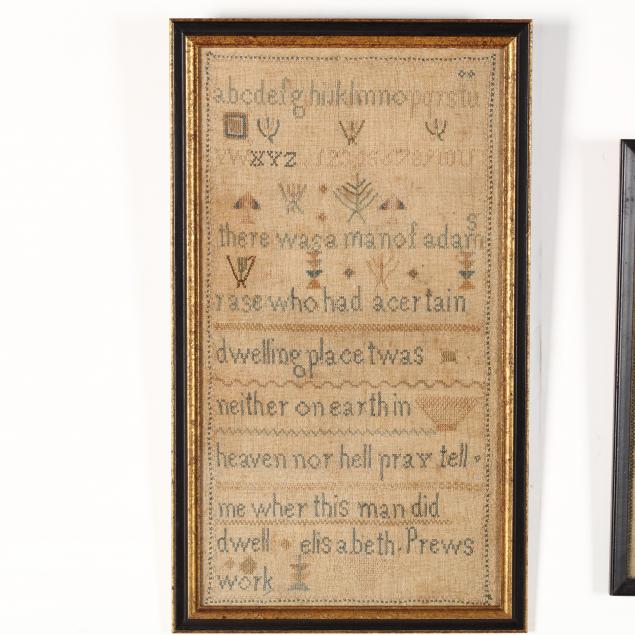 abcdefghijklmnopqrstu
vwxyz
there was a man of adams
rase who had acertain
dwelling place twas
neither on earth in
heaven nor hell pray tell
me wher this man did
dwell elisabeth Prews
work